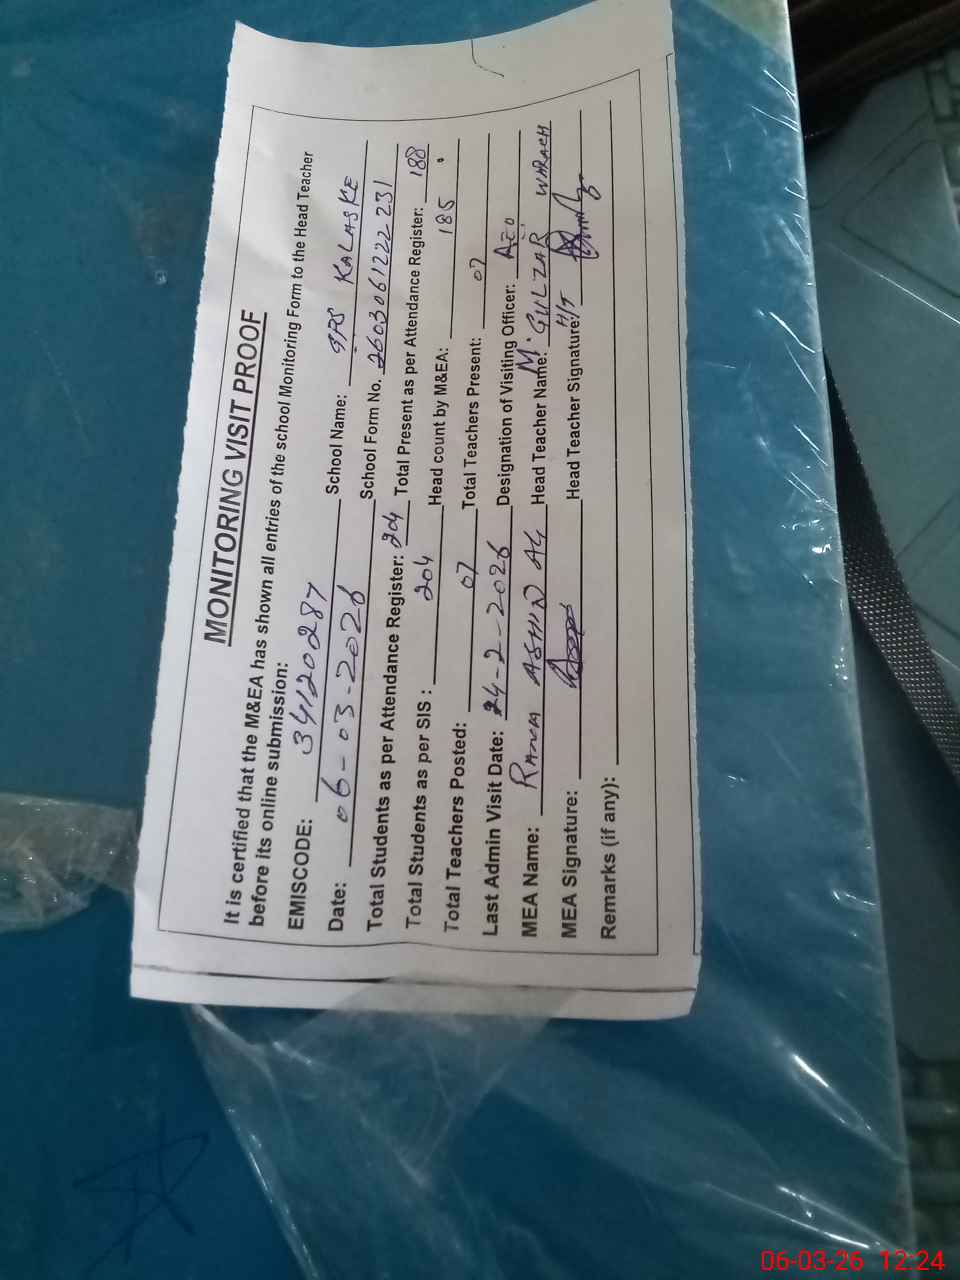 MONITORING VISIT PROOF
It is certified that the M&EA has shown all entries of the school Monitoring Form to the Head Teacher
before its online submission:
EMISCODE: 34120287 School Name: GPS KALASKE
Date: 06-03-2026 School Form No. 2603061222231
Total Students as per Attendance Register: 204 Total Present as per Attendance Register: 188
Total Students as per SIS: 204 Head count by M&EA: 185
Total Teachers Posted: 07 Total Teachers Present: 07
Last Admin Visit Date: 24-2-2026 Designation of Visiting Officer: AEO
MEA Name: RANA Head Teacher Name: M. GULZAR WARACH
MEA Signature: Head Teacher Signature: H/T
Remarks (if any):
06-03-26 12:24